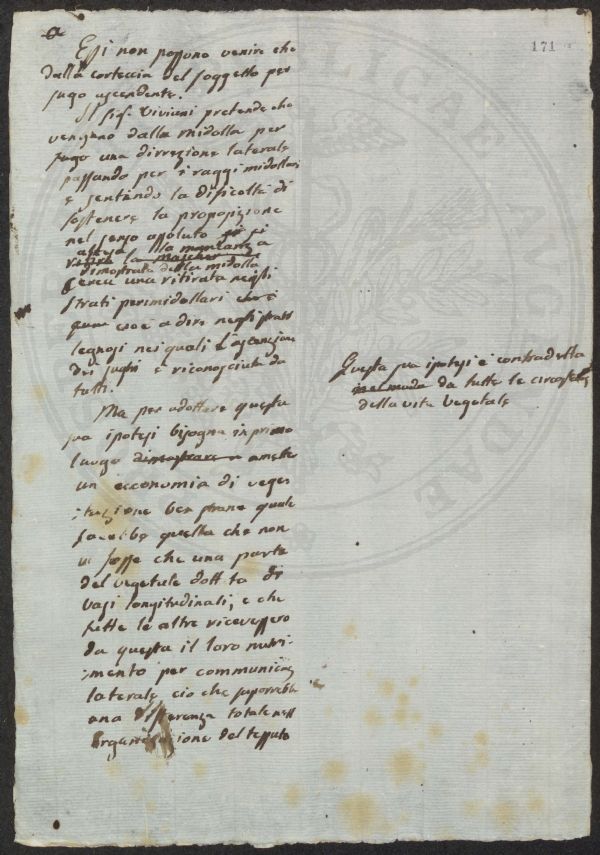 171
Essi non possono venire che
dalla corteccia del soggetto per
sugo ascendente.
Il Sig. Viviani pretende che
vengano dalla midolla per
sugo una dirrezione laterale
passando per i raggi midollari
e sentendo la dificoltà di
sostenere la proposizione
nel senso assoluto si
attesa la mancanza
ritira la
dimostrata della midolla
cerca una ritirata negli
strati perimidollari
cioè a dire negli strati
legnosi nei quali l'ascenzione
dei sughi è riconosciuta da
tutti.
Ma per adottare questa
sua ipotesi bisogna in primo
luogo dimostrare amette
un economia di vege-
:tazione ben strana quale
sarebbe quella che non
vi fosse che una parte
del vegetale dottata di
vasi longitudinali, e che
tutte le altre ricevessero
da questa il loro nutri-
:mento per communicaz
laterale ciò che suporrebbe
una differenza totale nell
organizazione del tessuto
Questa sua ipotesi è contradetta
da tutte le circostze
della vita vegetale